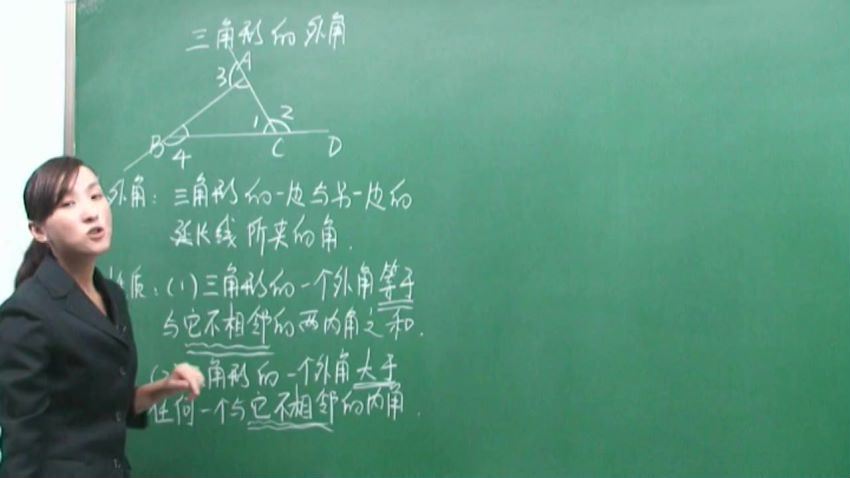 三角形的外角
A
3
1
2
B
4
C
D
外角：三角形的一边与另一边的
延长线所夹的角.
质：(1)三角形的一个外角等于
与它不相邻的两内角之和.
角形的一个外角大于
任何一个与它不相邻的内角.